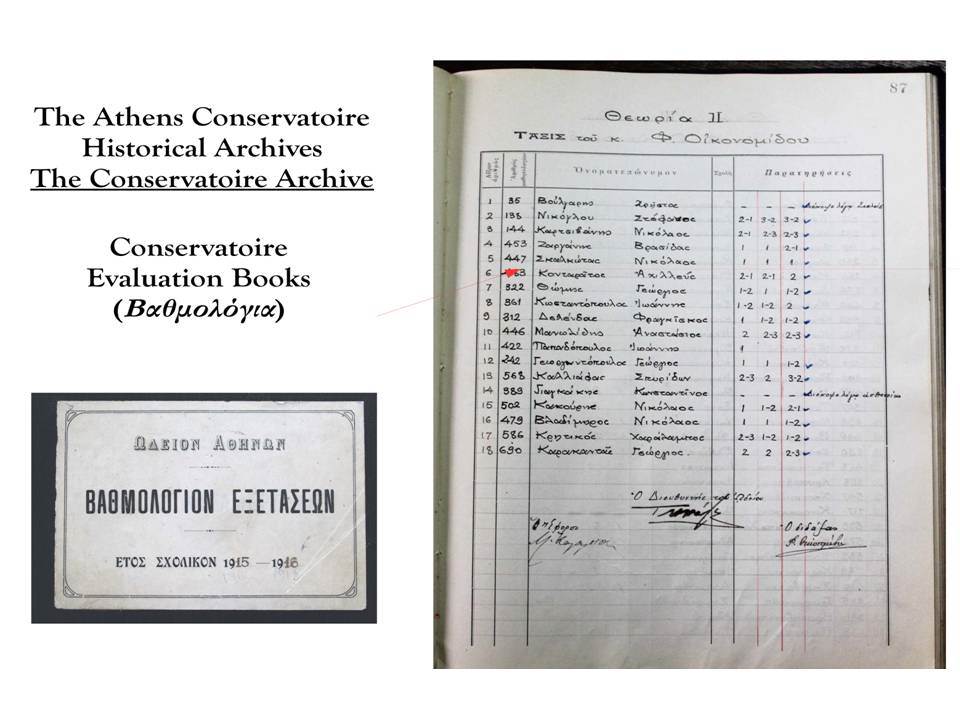 The Athens Conservatoire
Historical Archives
The Conservatoire Archive
Conservatoire
Evaluation Books
(Βαθμολόγια)
ΩΔΕΙΟΝ ΑΘΗΝΩΝ
ΒΑΘΜΟΛΟΓΙΟΝ ΕΞΕΤΑΣΕΩΝ
ΕΤΟΣ ΣΧΟΛΙΚΟΝ 1915 — 1916
87
Θεωρία ΙΙ
ΤΑΞΙΣ τοῦ κ. Φ. Οἰκονομίδου
Αὔξων ἀριθμός Ἀριθμός Ὀνοματεπώνυμον Σχολή Παρατηρήσεις
1 35 Βούλγαρης Χρῆστος – – –
2 138 Νικόγλου Στέφανος 2-1 3-2 3-2
3 144 Καρτσιβάνης Νικόλαος 2-1 2-3 2-3
4 453 Ζαργάνης Βρασίδας 1 1 2-1
5 447 Σκαλκώτας Νικόλαος 1 1 1
6 Κονταρᾶτος Ἀχιλλεύς 2-1 2-1 2
7 322 Θώμης Γεώργιος 1-2 1 1-2
8 361 Κωσταντόπουλος Ἰωάννης 1-2 1-2 2
9 312 Δελένδας Φραγκῖσκος 1 1-2 1-2
10 446 Μανωλίδης Ἀναστάσιος 2 2-3 2-3
11 422 Παπαδόπουλος Ἰωάννης 1
12 242 Γεωργαντόπουλος Γεώργιος 1 1 1-2
13 568 Καλλιάφας Σπυρίδων 2-3 2 3-2
14 389 Γιαγκάκης Κωνσταντῖνος – – –
15 502 Κασκούρης Νικόλαος 1 1-2 2-1
16 479 Βλαδίμηρος Νικόλαος 1 1 1-2
17 586 Κρητικός Χαράλαμπος 2-3 1-2 1-2
18 690 Καρακαντᾶς Γεώργιος 2 2 2-3
Ὁ Διευθυντής τοῦ Ὠδείου
Ὁ διδάξας